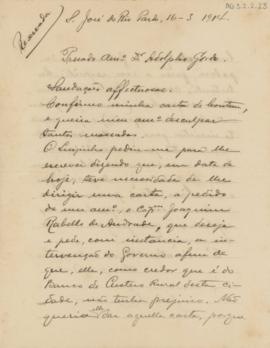 AG 3.2.2.23
Reservada
S. José do Rio Pardo, 16-3 1914.
Presado Amº Dr Adolpho Gordo.
Saudações affectuosas.
Confirmo minha carta de hontem,
e queira meu amº desculpar
tantas massadas.
O Luizinho pediu-me para lhe
escrever dizendo que, em data de
hoje, teve necessidade de lhe
dirigir uma carta, a pedido
de um amº, o Capm Joaquim
Rabello de Andrade, que deseja
e pede, com instancia, a in-
tervenção do Governo afim de
que, elle, como credor que é do
Banco de Custeio Rural desta ci-
dade, não tenha prejuizo. Não
queria elle dar aquella carta, porque